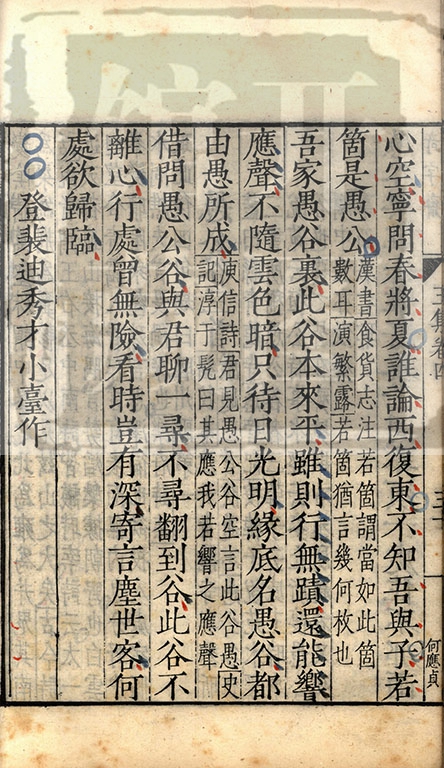 心空寧問春將夏誰論西復東不知吾與子若
箇是愚公
漢書食貨志注若箇謂當如此箇
數耳演繁露若箇猶言幾何枚也
吾家愚谷裏此谷本來平雖則行無蹟還能響
應聲不隨雲色暗只待日光明緣底名愚谷都
由愚所成
演信詩君見愚公谷空言此谷愚史
記淳于髡曰其應我若響之應聲
借問愚公谷與君聊一尋不尋翻到谷此谷不
離心行處曾無險看時豈有深寄言塵世客何
處欲歸臨
○○登裴迪秀才小臺作
何應貞